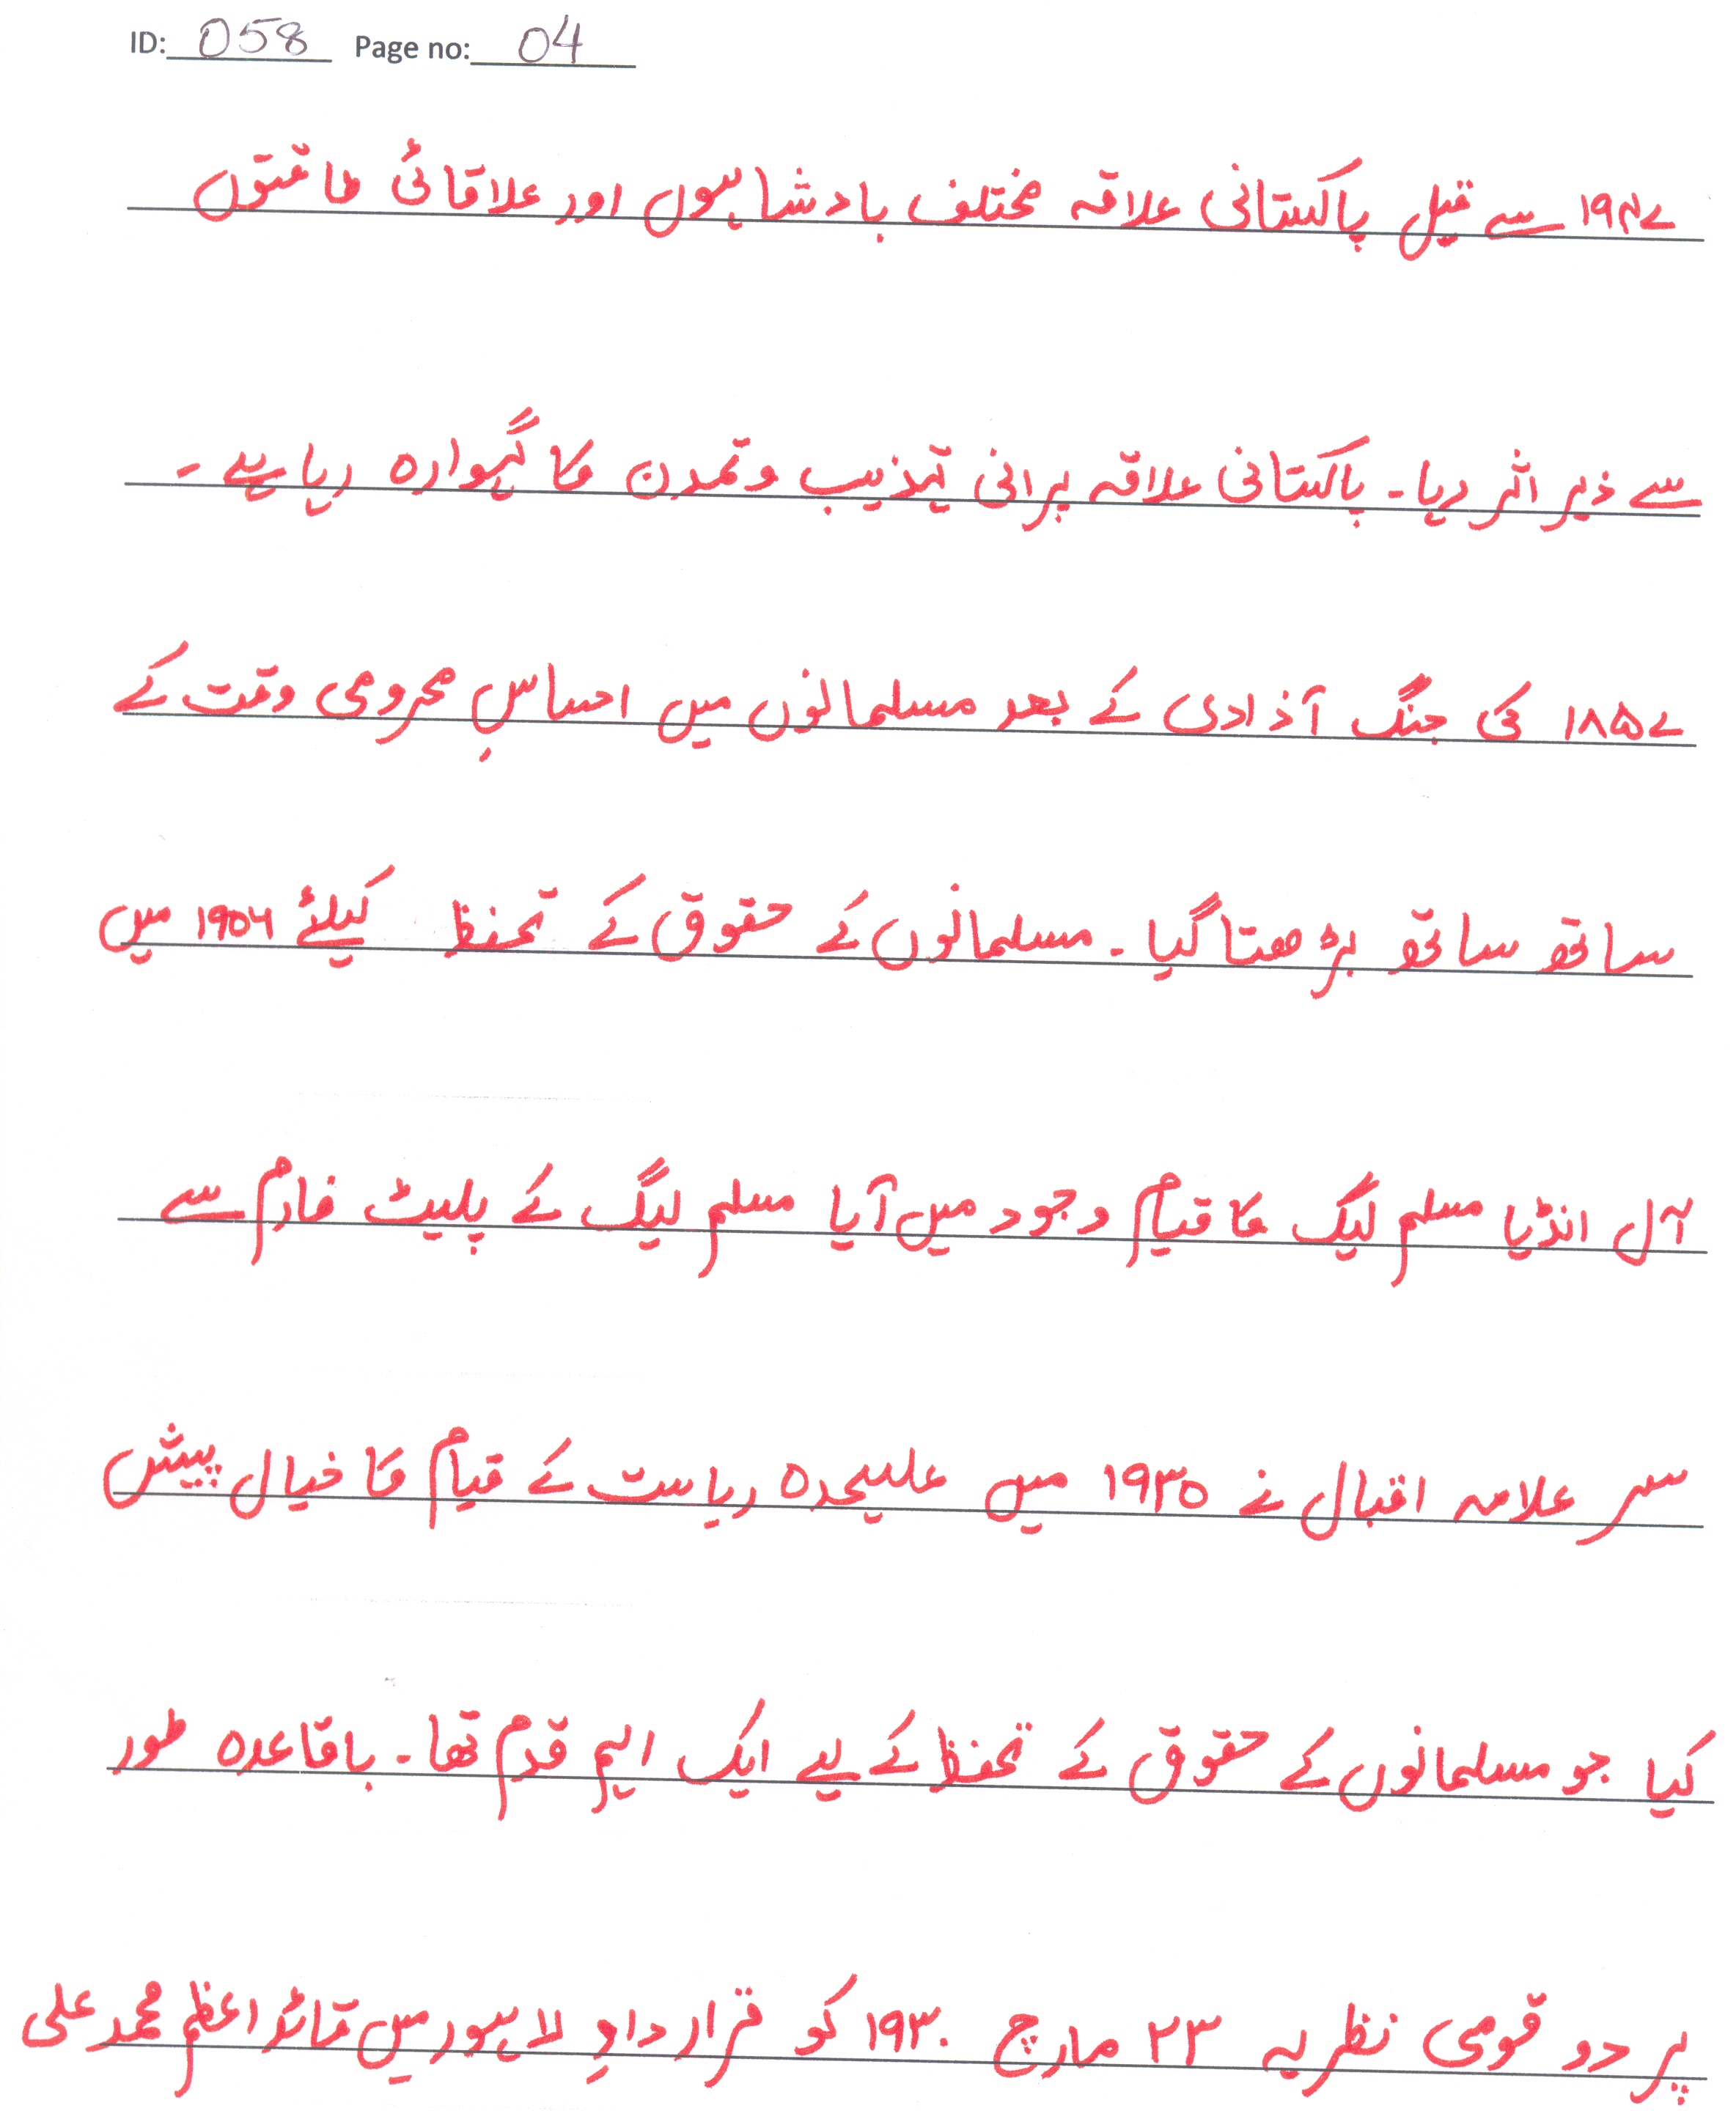 ID: 058 Page no: 04
۱۹۴۷ سے قبل پاکستانی علاقہ مختلف بادشاہوں اور علاقائی طاقتوں
سے ذیر اثر رہا۔ پاکستانی علاقہ پرانی تہذیب وتمدن کا گہوارہ رہا ہے۔
۱۸۵۷ کی جنگ آذادی کے بعد مسلمانوں میں احساسِ محرومی وقت کے
ساتھ ساتھ بڑھتا گیا۔ مسلمانوں کے حقوق کے تحفظ کیلئے ۱۹۰۶ میں
آل انڈیا مسلم لیگ کا قیام وجود میں آیا مسلم لیگ کے پلیٹ فارم سے
سر علامہ اقبال نے ۱۹۳۰ میں علیحدہ ریاست کے قیام کا خیال پیش
کیا جو مسلمانوں کے حقوق کے تحفظ کے لیے ایک اہم قدم تھا۔ باقاعدہ طور
پر دو قومی نظریہ ۲۳ مارچ ۱۹۳۰ کو قرار دادِ لاہور میں قائد اعظم محمد علی